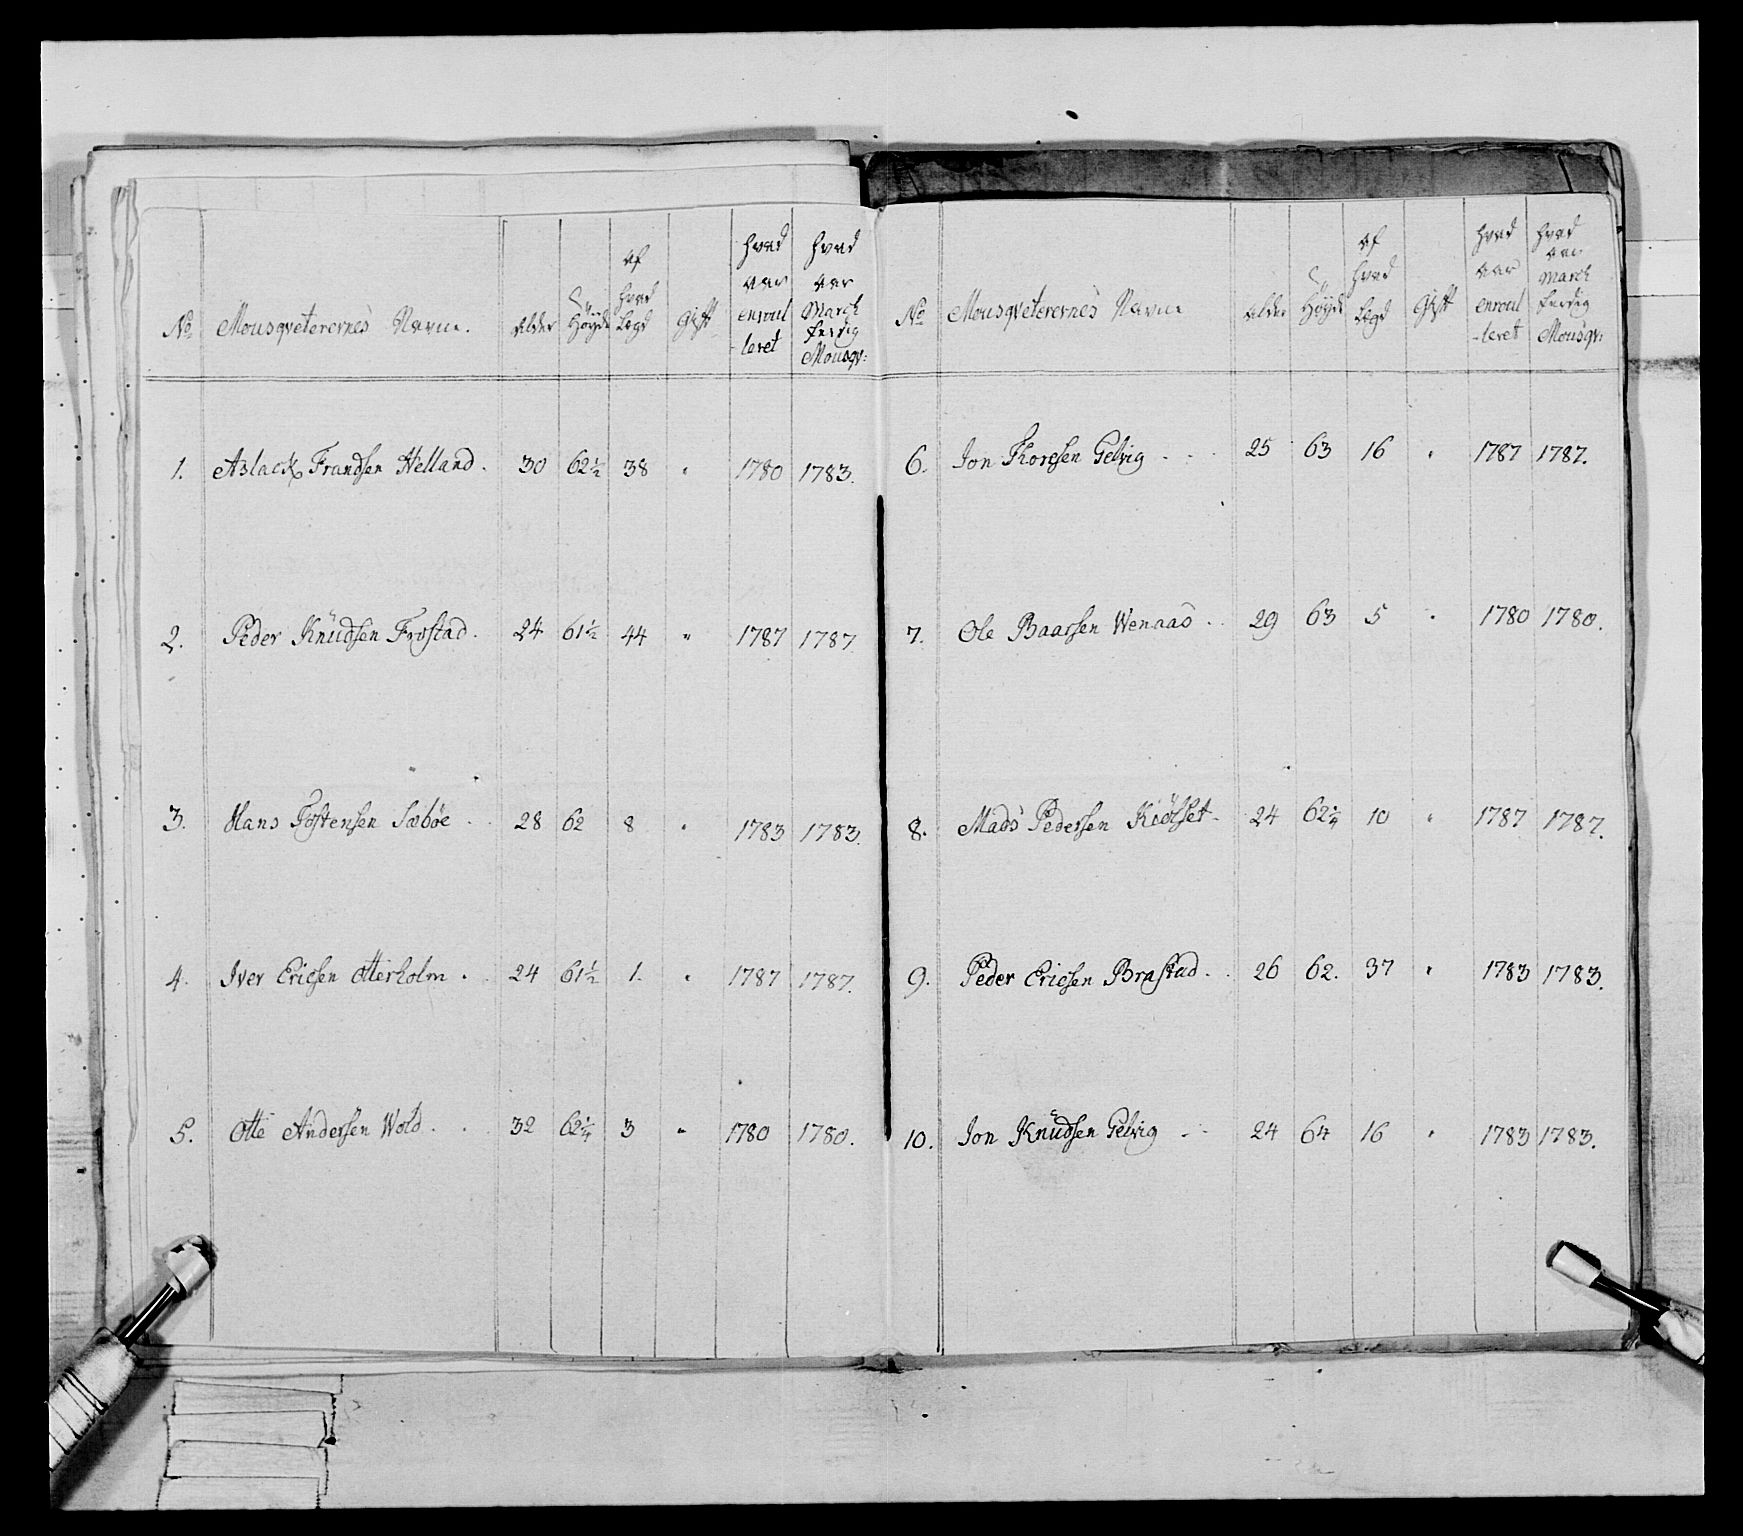 No Mousqveterernes Navne. alder Høyde af hvad Lægd Gift hvad aar enroul-leret hvad aar March ferdig Mousqv:
1. Aslack Frandsen Helland. 30 62½ 38 " 1780 1783.
2. Peder Knudsen Frostad. 24 61½ 44 " 1787 1787
3. Hans Tostensen Sæbøe 28 62 8 " 1783 1783.
4. Iver Ericsen Otterholm. 24 61½ 1. " 1787 1787.
5. Otte Andersen Wold. 32 62¼ 3 " 1780 1780.
No Mousqveterernes Navne alder Høyde af hvad Lægd Gift hvad aar enroul-leret hvad aar March ferdig Mousqv:
6. Jon Thoresen Gelvig 25 63 16 " 1787 1787.
7. Ole Baarsen Wenaas 29 63 5 " 1780 1780.
8. Mads Pedersen 24 62¼ 10 " 1787 1787.
9. Peder Ericsen Brastad. 26 62. 37 " 1783 1783.
10. Jon Knudsen Gelvig 24 64 16 " 1783 1783.